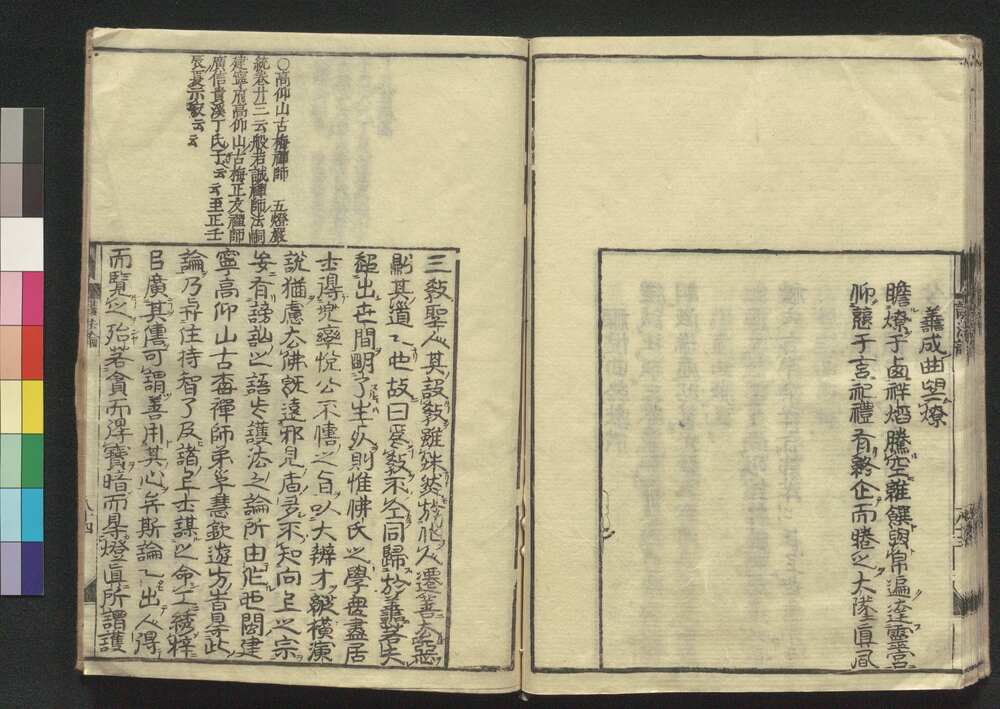 善成曲望燎
瞻燎于鹵祥熖騰空雜饌與帛遍達靈宮
仰于玄祀禮有終企而瞻之大眞風
○高仰山古梅禪師　五燈嚴
統卷廿三云般若誠禪師法嗣
建寧府高仰山古梅正友禪師
廣信貴溪丁氏子云云至正壬
辰夏示寂云云
三敎聖人其設敎雖殊然於化人遷善去惡
則其道一也故曰爲敎不仝同歸於善若夫
超出世間明了生死則惟佛氏之學無盡居
士得兜率悅公不傳之旨以大辨才縱橫演
說猶慮去佛旣遠邪見者多不知向上之宗
妄有謗訕之語此護法之論所由作也閩建
寧高仰山古梅禪師弟子慧欽遊方嘗見此
論乃與住持智了及諸上士謀之命工綉梓
以廣其傳可謂善用其心矣斯論一出人得
而覽之殆若貧而得寶暗而得燈眞所謂護